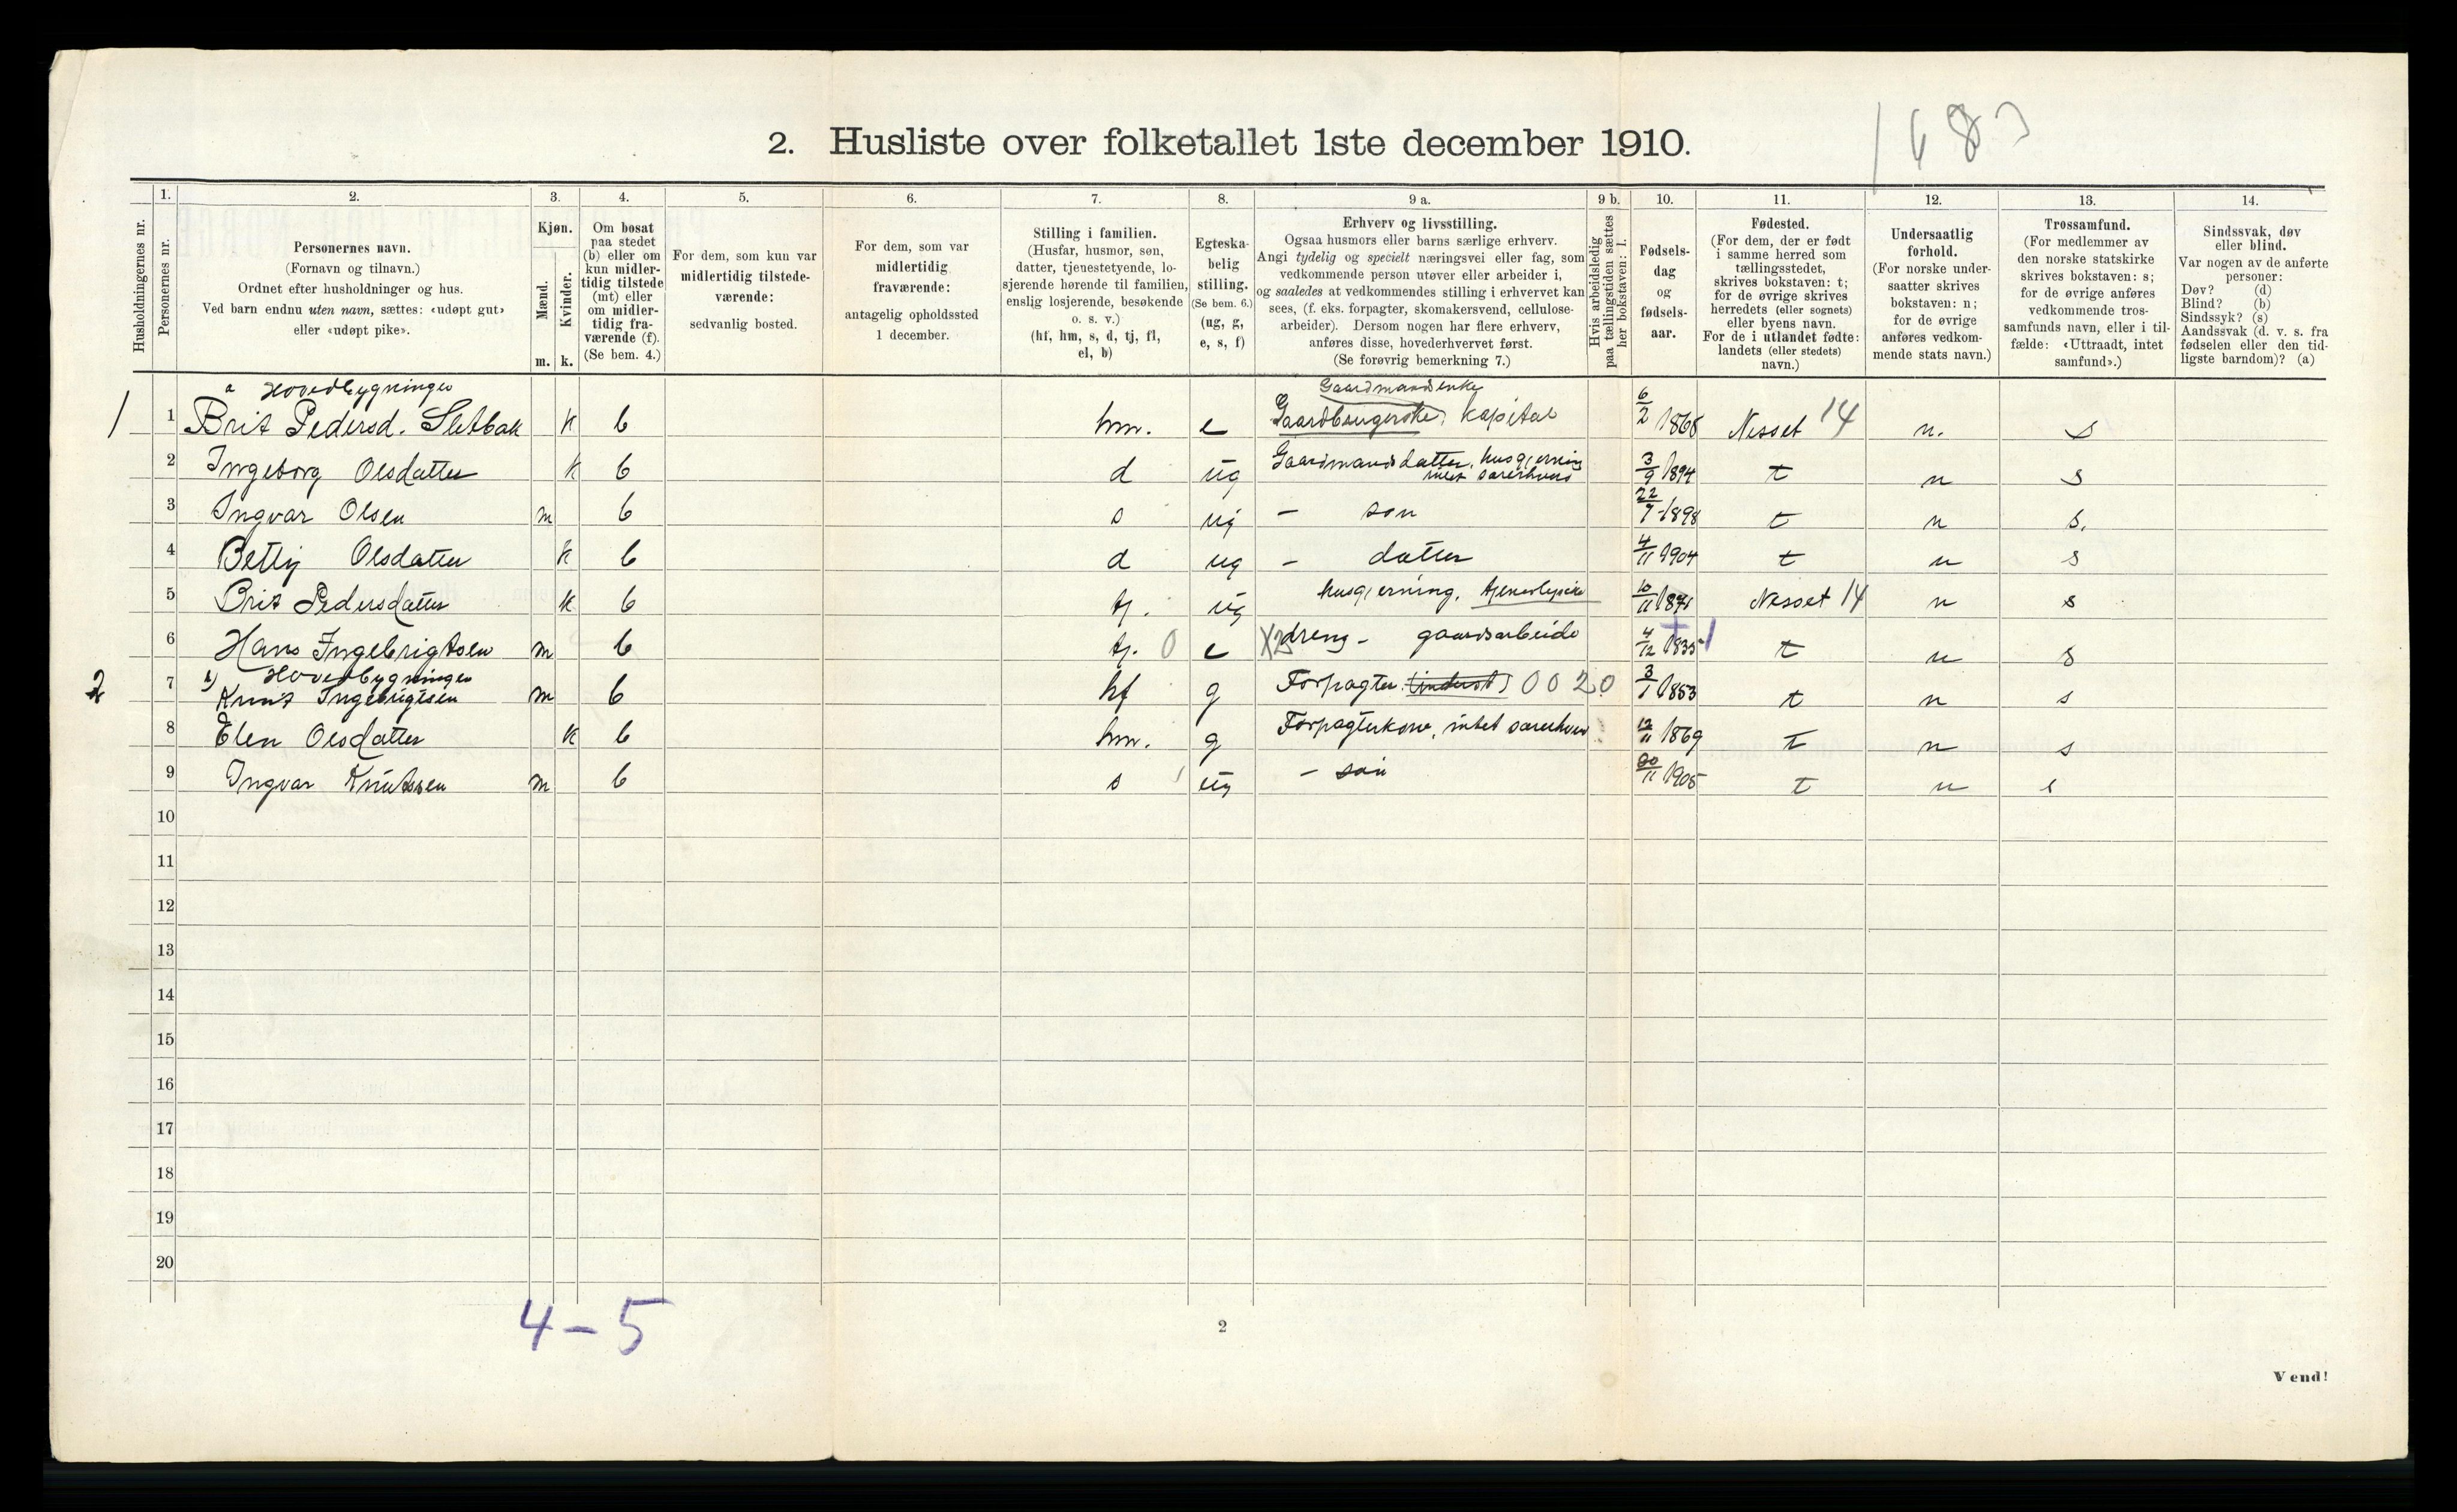 1683
2. Husliste over folketallet 1ste december 1910.
Husholdningernes nr.
1. Personernes nr.
2. Personernes navn. (Fornavn og tilnavn.) Ordnet efter husholdninger og hus. Ved barn endnu uten navn, sættes: «udøpt gut» eller «udøpt pike».
3. Kjøn. Mænd. m. Kvinder. k.
4. Om bosat paa stedet (b) eller om kun midlertidig tilstede (mt) eller om midlertidig fraværende (f). (Se bem. 4.)
5. For dem, som kun var midlertidig tilstedeværende: sedvanlig bosted.
6. For dem, som var midlertidig fraværende: antagelig opholdssted 1 december.
7. Stilling i familien. (Husfar, husmor, søn, datter, tjenestetyende, losjerende hørende til familien, enslig losjerende, besøkende o. s. v.) (hf, hm, s, d, tj, fl, el, b)
8. Egteskabelig stilling. (Se bem. 6.) (ug, g, e, s, f)
9 a. Erhverv og livsstilling. Ogsaa husmors eller barns særlige erhverv. Angi tydelig og specielt næringsvei eller fag, som vedkommende person utøver eller arbeider i, og saaledes at vedkommendes stilling i erhvervet kan sees, (f. eks. forpagter, skomakersvend, cellulosearbeider). Dersom nogen har flere erhverv, anføres disse, hovederhvervet først. (Se forøvrig bemerkning 7.)
9 b. Hvis arbeidsledig paa tællingstiden sættes her bokstaven: l.
10. Fødselsdag og fødselsaar.
11. Fødested. (For dem, der er født i samme herred som tællingsstedet, skrives bokstaven: t; for de øvrige skrives herredets (eller sognets) eller byens navn. For de i utlandet fødte: landets (eller stedets) navn.)
12. Undersaatlig forhold. (For norske undersaatter skrives bokstaven: n; for de øvrige anføres vedkommende stats navn.)
13. Trossamfund. (For medlemmer av den norske statskirke skrives bokstaven: s; for de øvrige anføres vedkommende trossamfunds navn, eller i tilfælde: «Uttraadt, intet samfund».)
14. Sindssvak, døv eller blind. Var nogen av de anførte personer: Døv? (d) Blind? (b) Sindssyk? (s) Aandssvak (d. v. s. fra fødselen eller den tidligste barndom)? (a)
a Hovedbygningen Gaardmandsenke
1 1 Brit Pedersd. Sletbak k b hm. e Gaardbrugerske, kapital 6/2 1868 Nesset 14 n. s
2 Ingeborg Olsdatter k b d ug Gaardmandsdatter, husgjerning intet særerhverv 3/9 1894 t n s
3 Ingvar Olsen m b s ug - søn 22/7 1898 t n s.
4 Betty Olsdatter k b d ug - datter 4/11 1904 t n s
5 Brit Pedersdatter k b tj. ug husgjerning, tjenestepike 10/11 1871 Nesset 14 n s
6 Hans Ingebrigtsen m b tj. 0 e X2 dreng - gaardsarbeide 4/12 1835 t n s
b) Hovedbygningen
2 7 Knut Ingebrigtsen m b hf g Forpagter (inderst) 0 0 2 0 3/1 1853 t n s
8 Elen Olsdatter k b hm. g Forpagterkone, intet særerhverv 12/11 1869 t n s
9 Ingvar Knutssen m b s ug - søn 20/11 1905 t n s
10
11
12
13
14
15
16
17
18
19
20
4-5
2
Vend!